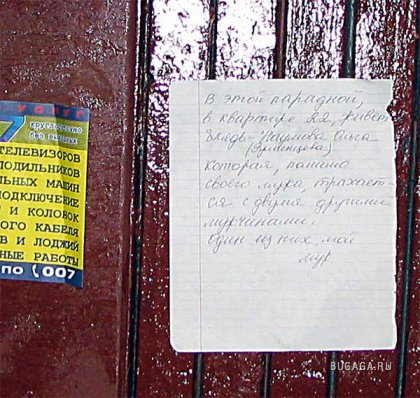 ТЕЛЕВИЗОРОВ
ОЛОДИЛЬНИКОВ
ЛЬНЫХ МАШИН
ПОДКЛЮЧЕНИЕ
И КОЛОНОК
ОГО КАБЕЛЯ
В И ЛОДЖИЙ
НЫЕ РАБОТЫ
ПО 007
В этой парадной,
в квартире 22, живет
блядь - Ольга
которая, помимо
своего мужа, трахает-
ся с двумя другими
мужчинами.
Один из них, мой
муж
BUGAGA.RU